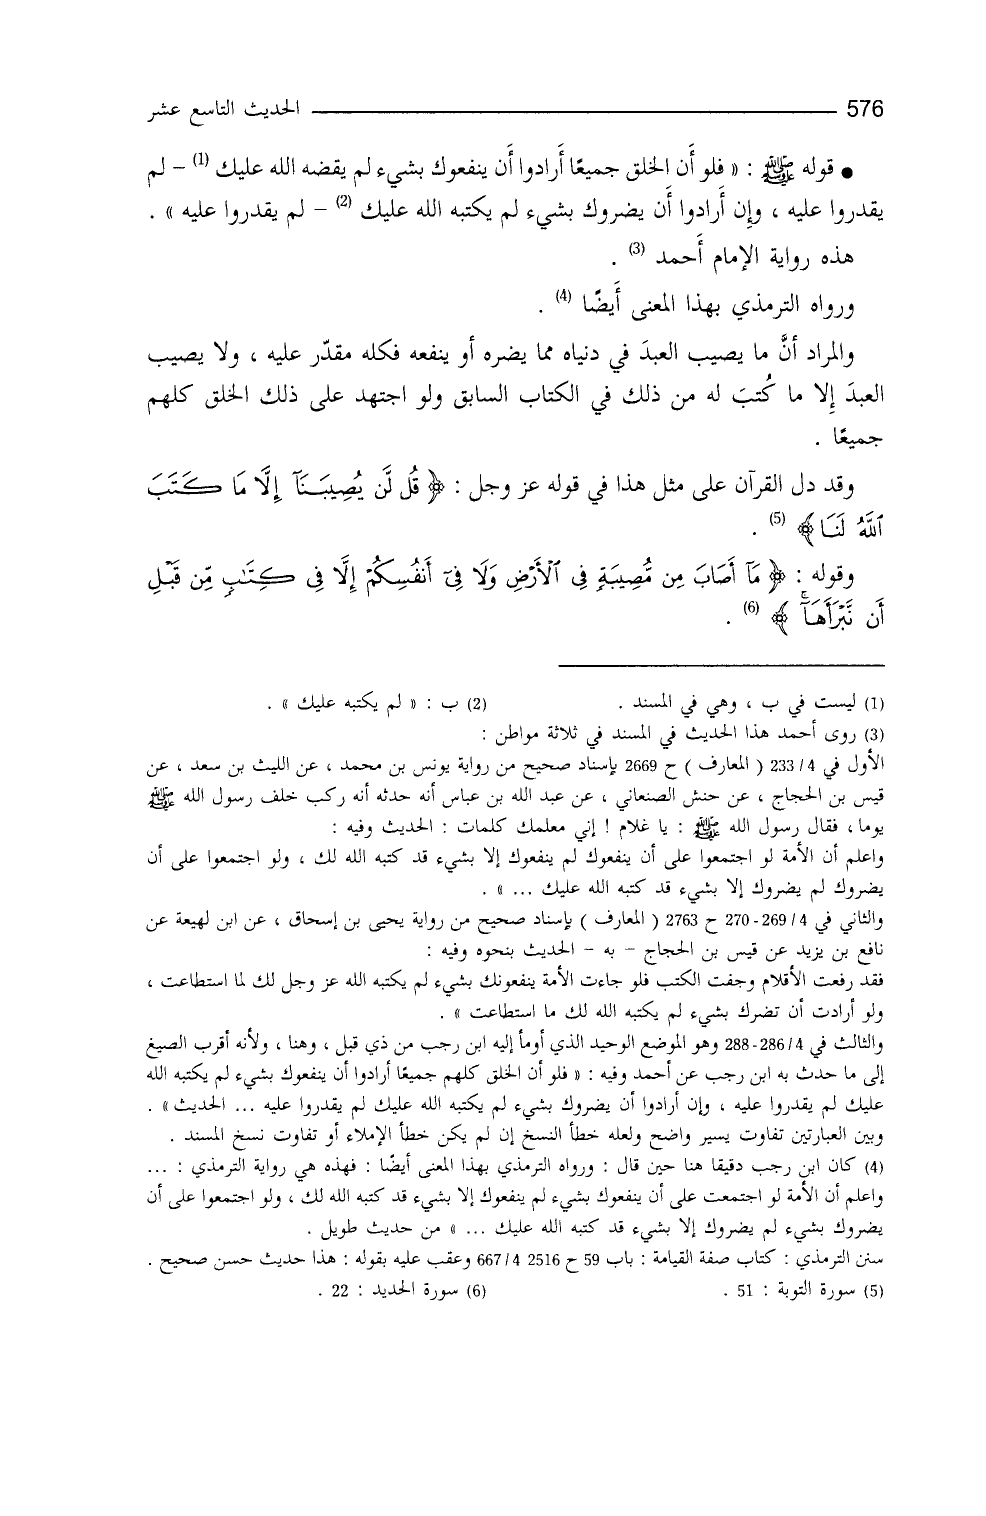 576 الحديث التاسع عشر
● قوله ﷺ : « فلو أَن الخلق جميعًا أَرادوا أَن ينفعوك بشيء لم يقضه الله عليك (1) – لم
يقدروا عليه ، وإِن أَرادوا أَن يضروك بشيء لم يكتبه الله عليك (2) – لم يقدروا عليه » .
هذه رواية الإمام أَحمد (3) .
ورواه الترمذي بهذا المعنى أَيضًا (4) .
والمراد أنَّ ما يصيب العبدَ في دنياه مما يضره أو ينفعه فكله مقدّر عليه ، ولا يصيب
العبدَ إِلا ما كُتبَ له من ذلك في الكتاب السابق ولو اجتهد على ذلك الخلق كلهم
جميعًا .
وقد دل القرآن على مثل هذا في قوله عز وجل : ﴿ قُل لَّن يُصِيبَنَآ إِلَّا مَا كَتَبَ
ٱللَّهُ لَنَا ﴾ (5) .
وقوله : ﴿ مَآ أَصَابَ مِن مُّصِيبَةٍ فِى ٱلْأَرْضِ وَلَا فِىٓ أَنفُسِكُمْ إِلَّا فِى كِتَٰبٍ مِّن قَبْلِ
أَن نَّبْرَأَهَآ ۚ ﴾ (6) .
(1) ليست في ب ، وهي في المسند . (2) ب : « لم يكتبه عليك » .
(3) روى أحمد هذا الحديث في المسند في ثلاثة مواطن :
الأول في 4/ 233 ( المعارف ) ح 2669 بإسناد صحيح من رواية يونس بن محمد ، عن الليث بن سعد ، عن
قيس بن الحجاج ، عن حنش الصنعاني ، عن عبد الله بن عباس أنه حدثه أنه ركب خلف رسول الله ﷺ
يوما ، فقال رسول الله ﷺ : يا غلام ! إني معلمك كلمات : الحديث وفيه :
واعلم أن الأمة لو اجتمعوا على أن ينفعوك لم ينفعوك إلا بشيء قد كتبه الله لك ، ولو اجتمعوا على أن
يضروك لم يضروك إلا بشيء قد كتبه الله عليك ... » .
والثاني في 4/ 269 - 270 ح 2763 ( المعارف ) بإسناد صحيح من رواية يحيى بن إسحاق ، عن ابن لهيعة عن
نافع بن يزيد عن قيس بن الحجاج – به – الحديث بنحوه وفيه :
فقد رفعت الأقلام وجفت الكتب فلو جاءت الأمة ينفعونك بشيء لم يكتبه الله عز وجل لك لما استطاعت ،
ولو أرادت أن تضرك بشيء لم يكتبه الله لك ما استطاعت » .
والثالث في 4/ 286 - 288 وهو الموضع الوحيد الذي أومأ إليه ابن رجب من ذي قبل ، وهنا ، ولأنه أقرب الصيغ
إلى ما حدث به ابن رجب عن أحمد وفيه : « فلو أن الخلق كلهم جميعًا أرادوا أن ينفعوك بشيء لم يكتبه الله
عليك لم يقدروا عليه ، وإن أرادوا أن يضروك بشيء لم يكتبه الله عليك لم يقدروا عليه ... الحديث » .
وبين العبارتين تفاوت يسير واضح ولعله خطأ النسخ إن لم يكن خطأ الإملاء أو تفاوت نسخ المسند .
(4) كان ابن رجب دقيقا هنا حين قال : ورواه الترمذي بهذا المعنى أيضًا : فهذه هي رواية الترمذي : ...
واعلم أن الأمة لو اجتمعت على أن ينفعوك بشيء لم ينفعوك إلا بشيء قد كتبه الله لك ، ولو اجتمعوا على أن
يضروك بشيء لم يضروك إلا بشيء قد كتبه الله عليك ... » من حديث طويل .
سنن الترمذي : كتاب صفة القيامة : باب 59 ح 2516 4/ 667 وعقب عليه بقوله : هذا حديث حسن صحيح .
(5) سورة التوبة : 51 . (6) سورة الحديد : 22 .